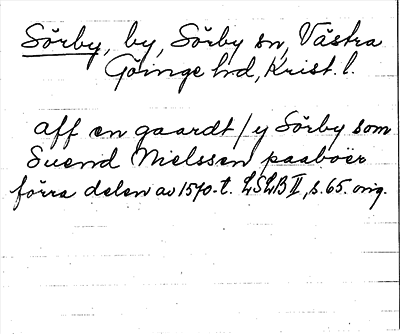 Sörby, by, Sörby sn, Västra
Göinge hd, Krist. l.
aff en gaardt / y Sörby som
Suend Nielssen paaboer
förra delen av 1570-t. LSLB II, s. 65. orig.